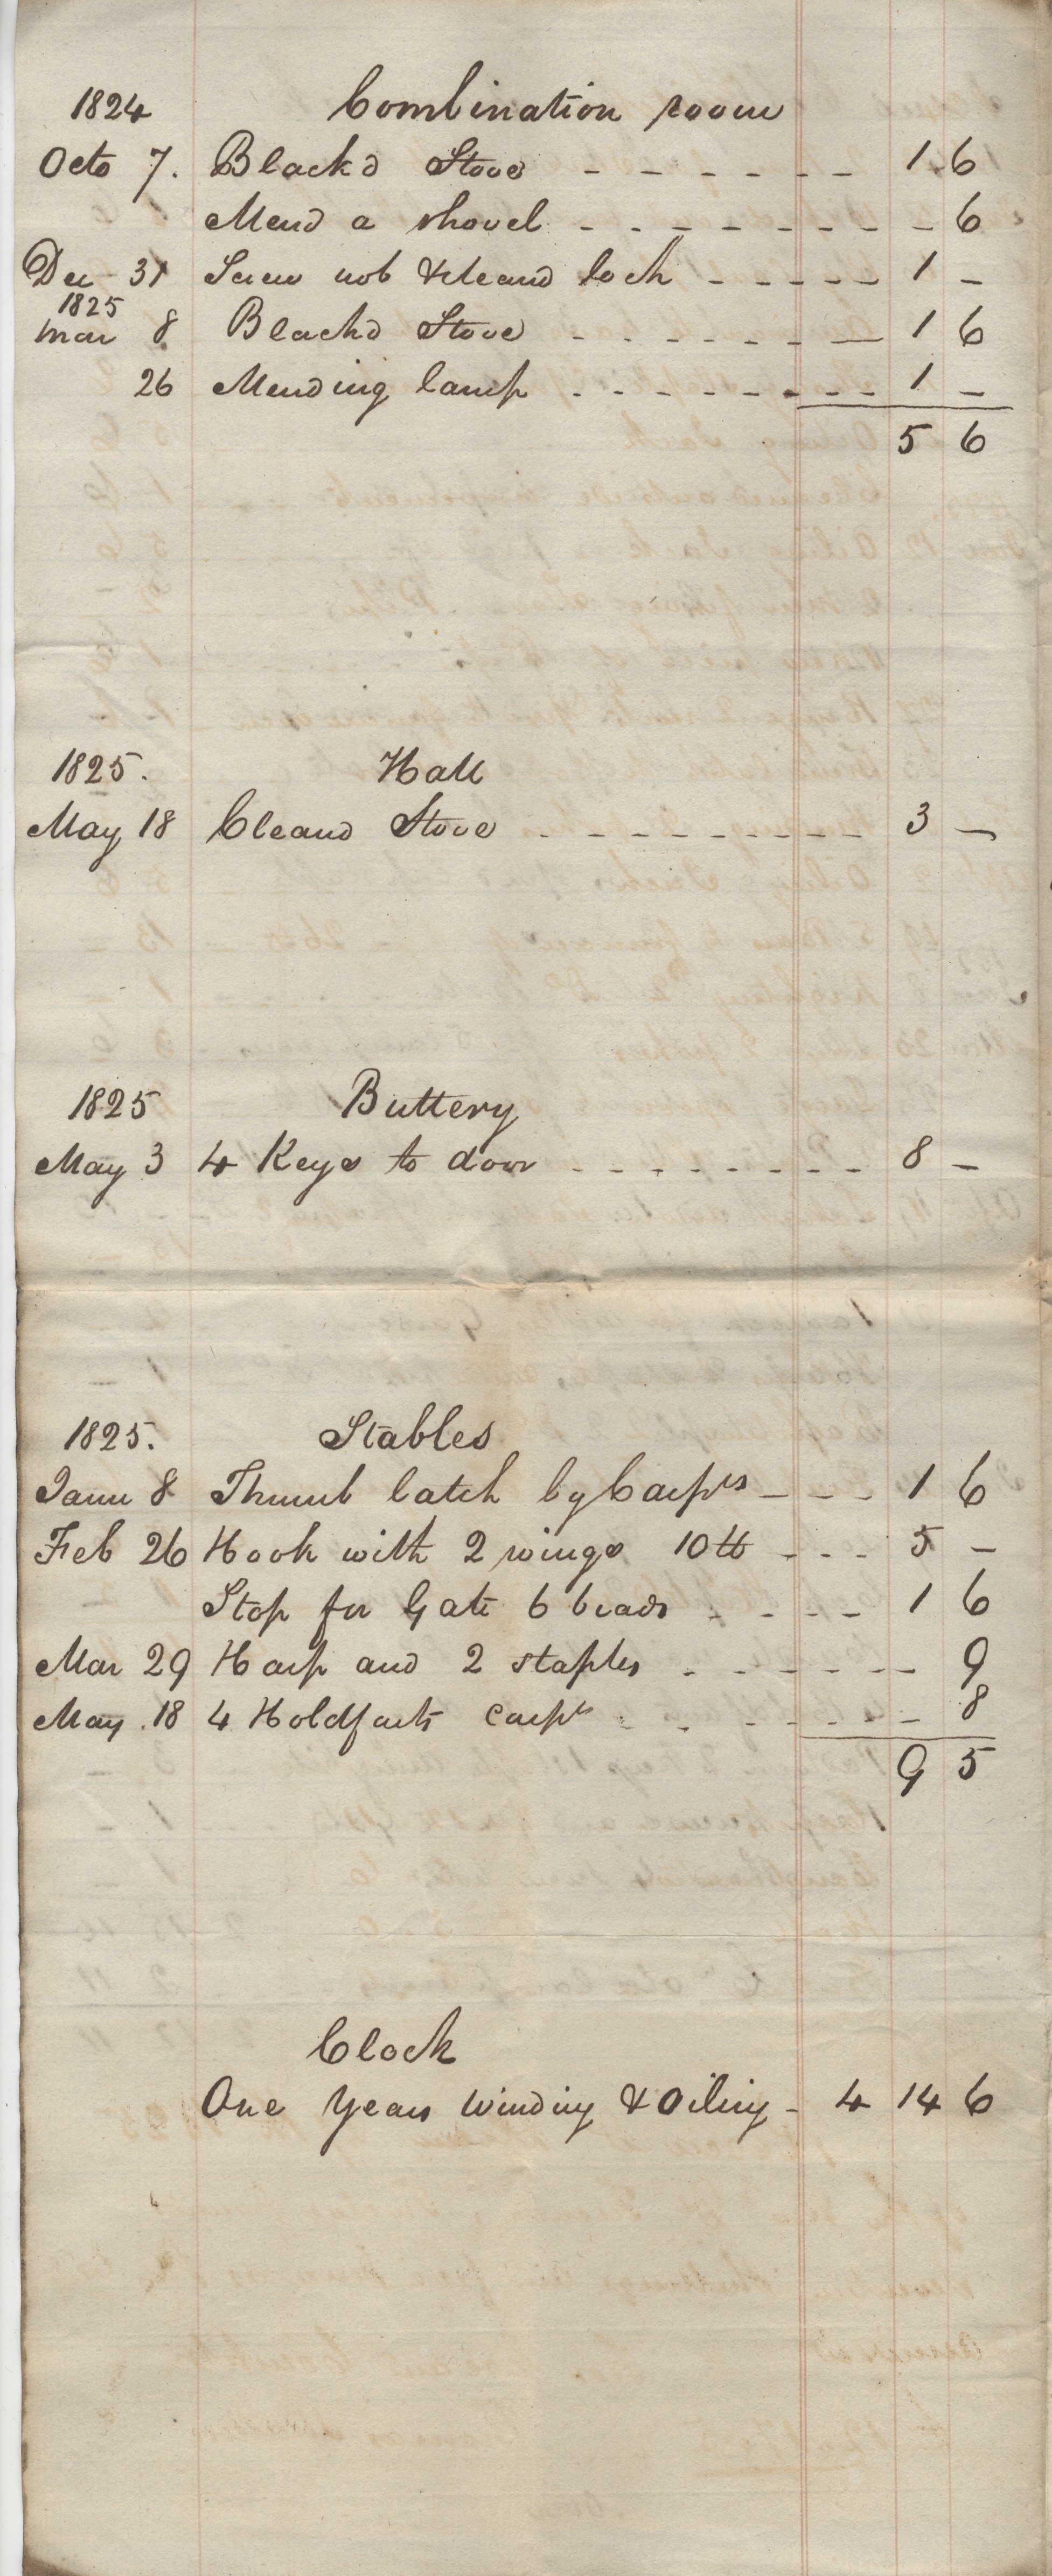 1824 Combination room
Octo 7. Blackd Stove - - - - - - - 1 6
Mend a shovel - - - - - - - - - 6
Dec 31 Screw nob & cleand lock - - - - - 1 -
1825
Mar 8 Blackd Stove - - - - - - - 1 6
26 Mending lamp - - - - - - - - 1 -
5 6
1825. Hall
May 18 Cleand Stove - - - - - - - - - 3 -
1825 Buttery
May 3 4 Keys to door - - - - - - - - - 8 -
1825. Stables
Janu 8 Thumb latch by Carptrs - - - 1 6
Feb 26 Hook with 2 wings 10 lb - - - 5 -
Stop for Gate 6 brads - - - - 1 6
Mar 29 Hasp and 2 staples - - - - - - 9
May 18 4 Holdfasts Carpts - - - - - - 8
9 5
Clock
One Years Winding & Oiling - 4 14 6